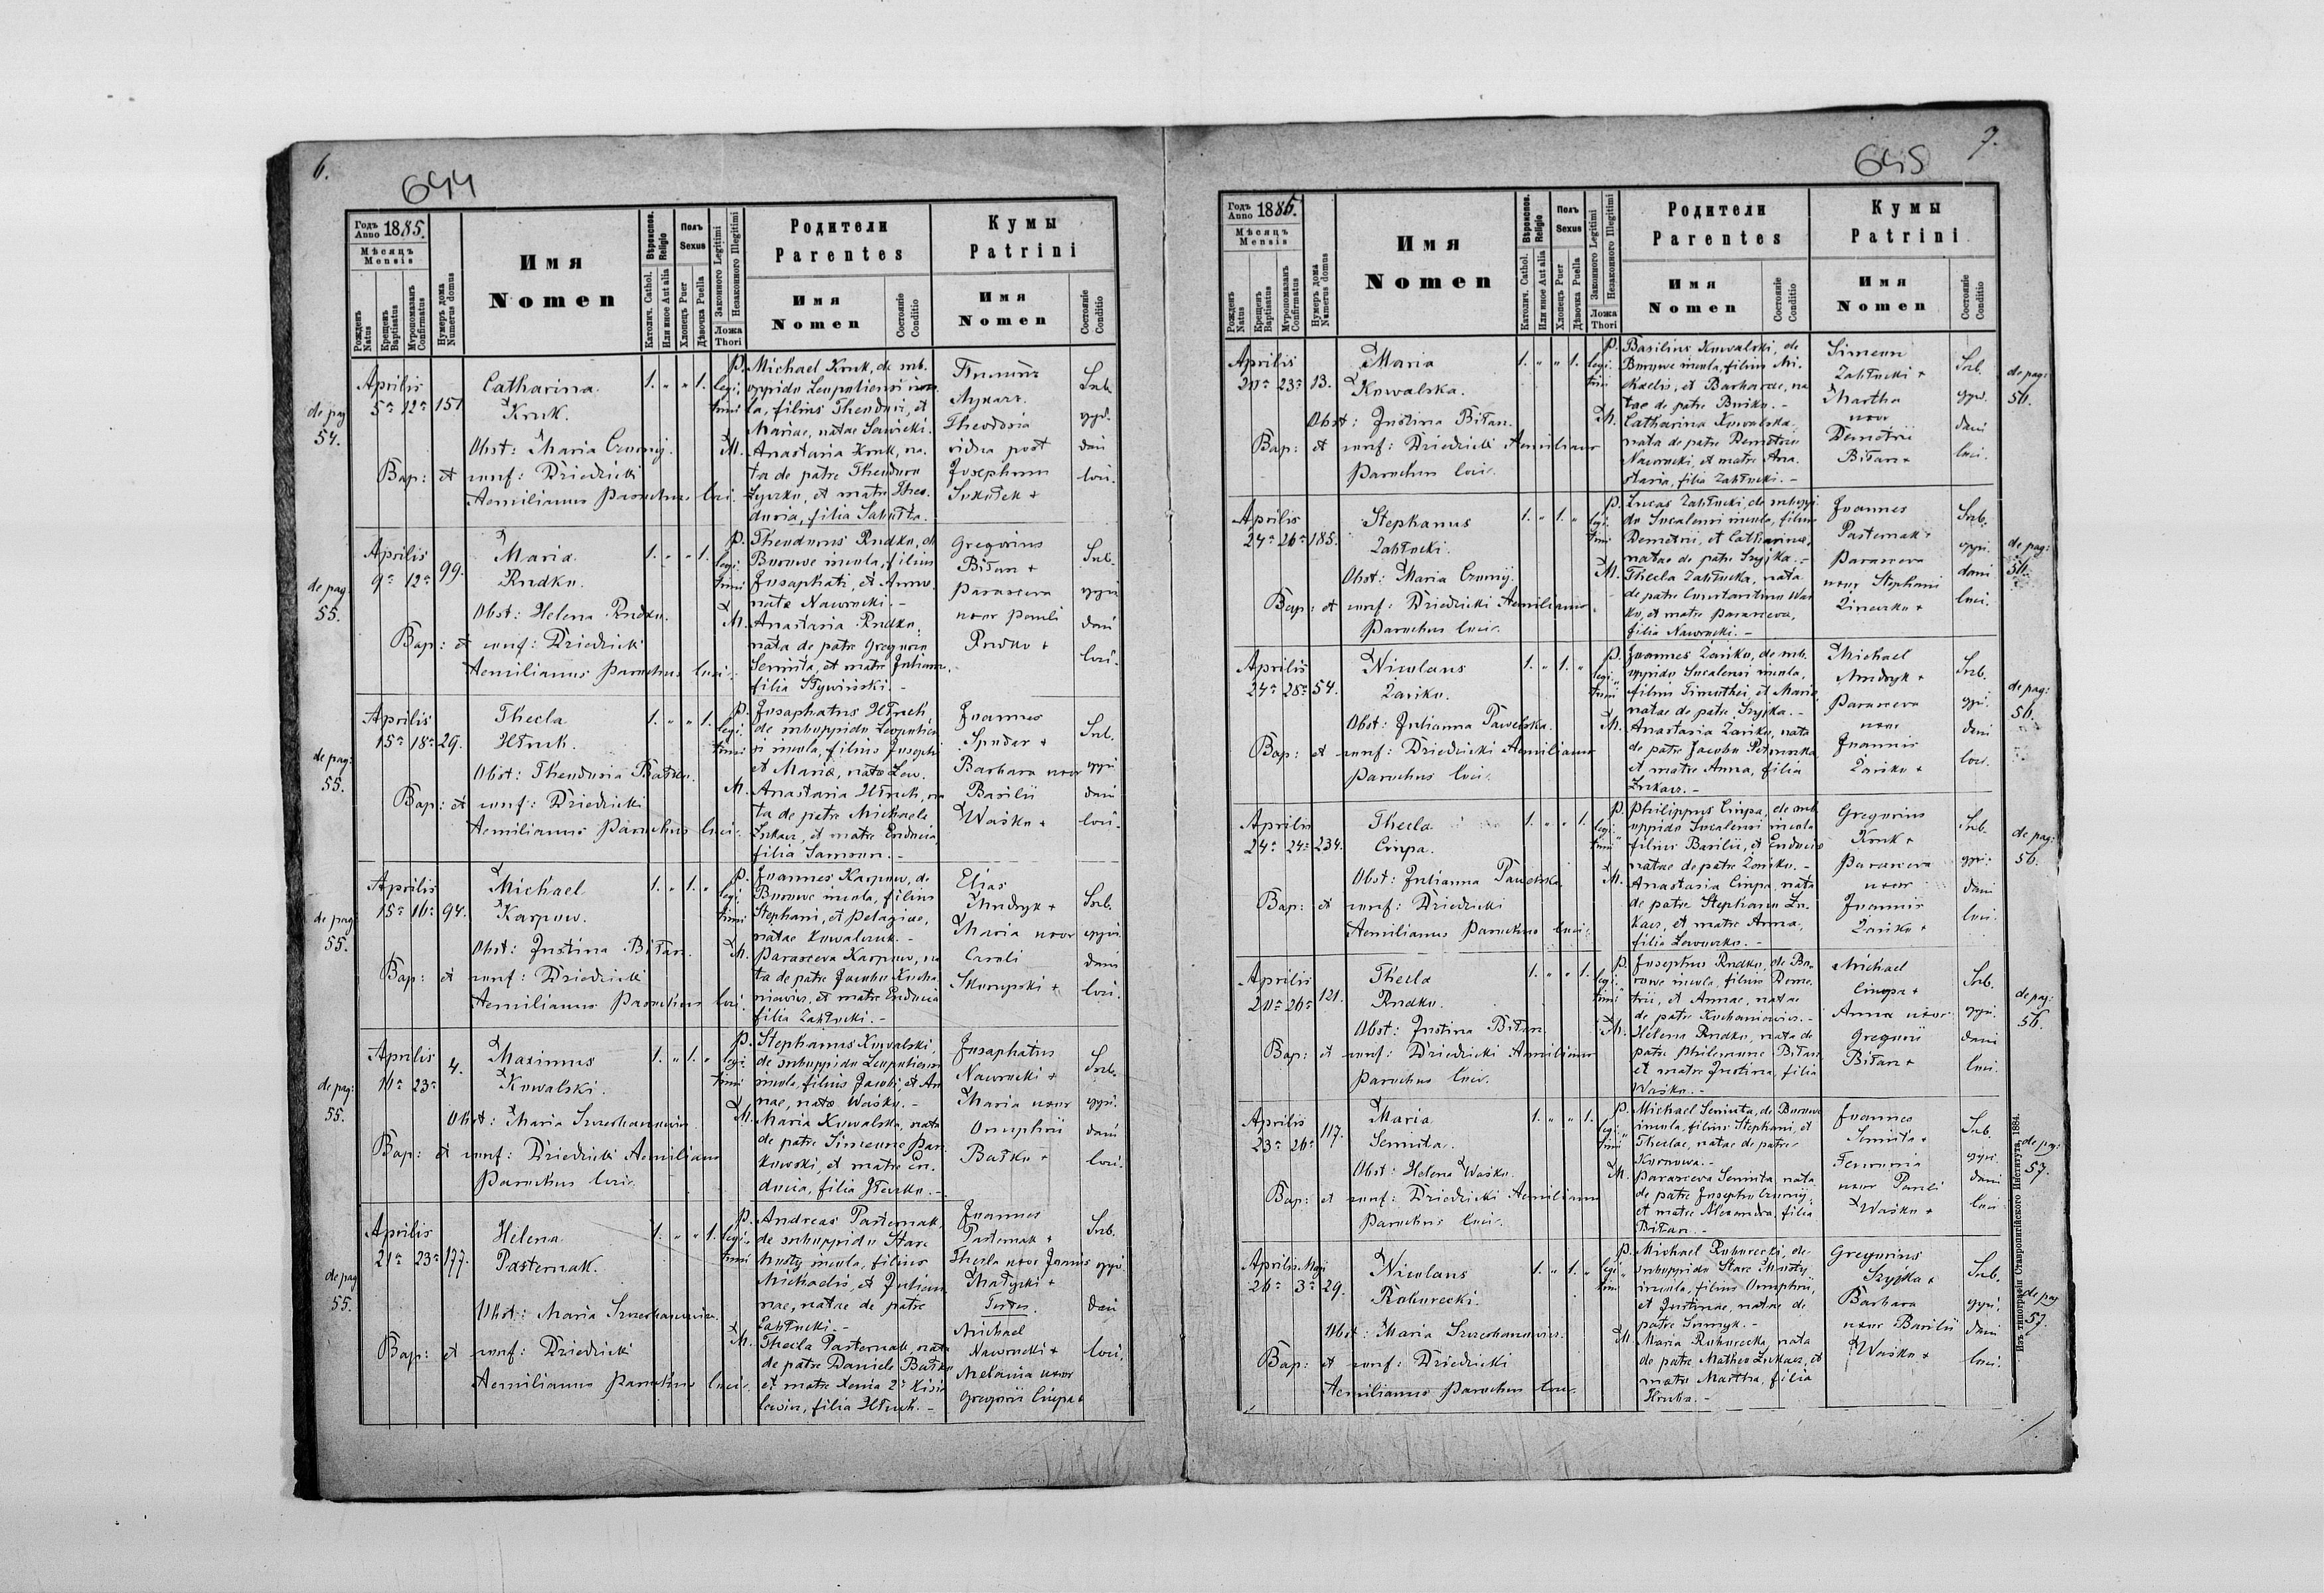 6.
644
Годъ Anno 1885.
Мѣсяцъ
Mensis
Рожденъ Natus
Крещенъ Baptisatus
Муропомазанъ Confirmatus
Нумеръ дома Numerus domus
Имя
Nomen
Вѣроиспов. Religio
Католич. Cathol.
Или иное Aut alia
Полъ
Sexus
Хлопецъ Puer
Дѣвочка Puella
Законного Legitimi
Незаконного Illegitimi
Ложа
Thori
Родители
Parentes
Имя
Nomen
Состояніе
Conditio
Кумы
Patrini
Имя
Nomen
Состояніе
Conditio
de pag
54.
Aprilis
5ª 12ª 151
Catharina
Kruk.
Obst: Maria Czornij.
Bap: et conf: Dziedzicki
Aemilianus Parochus loci.
1. " " 1. legi
timi
P. Michael Kruk, de sub
oppido Leopoliensi inco
la, filius Theodori, et
Mariae, natae Sawicki.
M. Anastasia Kruk, na
ta de patre Theodoro
et matre Theo
dosia, filia
Theodosia
vidua post
Josephum
Sokołek +
Sub
oppi
dani
loci.
de pag
55.
Aprilis
9ª 12ª 99.
Maria
Rudko.
Obst: Helena Rudko.
Bap: et conf: Dziedzicki
Aemilianus Parochus loci.
1. " " 1. legi
timi
P. Theodorus Rudko, de
Borowe incola, filius
Josaphati, et Annae
natae Nawrocki. -
M. Anastasia Rudko,
nata de patre Gregorio
Semita, et matre Julianna
filia
Gregorius
Biłan +
Parasceva
uxor Pauli
Rudko +
Sub.
oppi
dani
loci.
de pag:
55.
Aprilis
15ª 18ª 29.
Thecla
Hłuch.
Obst: Theodosia Bałko.
Bap: et conf: Dziedzicki
Aemilianus Parochus loci.
1. " " 1. legi
timi
P. Josaphatus Hłuch
de suboppido
incola, filius Josephi
et Mariae, natae Lew.
M. Anastasia Hłuch, na
ta de patre Michaele
Łukacz, et matre Eudocia,
filia Samson. -
Joannes
Spodar +
Barbara uxor
Basilii
Waśko +
Sub.
oppi
dani
loci.
de pag
55.
Aprilis
15ª 16ª 94.
Michael
Karpow.
Obst: Justina Biłan.
Bap: et conf: Dziedzicki
Aemilianus Parochus loci.
1. " 1. " legi
timi
P. Joannes Karpow, de
Borowe incola, filius
Stephani, et Pelagiae,
natae Kowalczuk. -
M. Parasceva Karpow, na
ta de patre Jacobo Kocha
niewicz, et matre Eudocia
filia Zahłucki. -
Elias
Andryk +
Maria uxor
Caroli
Skoropski +
Sub.
oppi
dani
loci.
de pag:
55.
Aprilis
16ª 23ª 4.
Maximus
Kowalski.
Obst: Maria
Bap: et conf: Dziedzicki Aemilianus
Parochus loci.
1. " 1. " legi
timi
P. Stephanus Kowalski,
de suboppido Leopoliensi
incola, filius Jacobi, et An
nae, natae Waśko. -
M. Maria Kowalska, nata
de patre Simeone Pan
kowski, et matre Eu
docia, filia
Josaphatus
Nawrocki +
Maria uxor
Onuphrii
Bałko +
Sub.
oppi.
dani
loci.
de pag
55.
Aprilis
21ª 23ª 177.
Helena
Pasternak.
Obst: Maria
Bap: et conf: Dziedzicki
Aemilianus Parochus loci.
1. " " 1. legi
timi
P. Andreas Pasternak,
de suboppido Stare
Mosty incola, filius
Michaelis, et Julian
nae, natae de patre
Zahłucki. -
M. Thecla Pasternak, nata
de patre Daniele Bałko
et matre Xenia
filia Hłuch. -
Joannes
Pasternak +
Thecla uxor Joannis
Testes
Michael
Nawrocki +
Melania uxor
Gregorii Ciupa +
Sub.
oppi
dani
loci.
7.
645
Годъ Anno 1885.
Мѣсяцъ
Mensis
Рожденъ Natus
Крещенъ Baptisatus
Муропомазанъ Confirmatus
Нумеръ дома Numerus domus
Имя
Nomen
Вѣроиспов. Religio
Католич. Cathol.
Или иное Aut alia
Полъ
Sexus
Хлопецъ Puer
Дѣвочка Puella
Законного Legitimi
Незаконного Illegitimi
Ложа
Thori
Родители
Parentes
Имя
Nomen
Состояніе
Conditio
Кумы
Patrini
Имя
Nomen
Состояніе
Conditio
Aprilis
20ª 23ª 13.
Maria
Kowalska.
Obst: Justina Biłan.
Bap: et conf: Dziedzicki Aemilianus
Parochus loci.
1. " " 1. legi
timi
P. Basilius Kowalski, de
Borowe incola, filius Mi
chaelis, et Barbarae, na
tae de patre Bojko. -
M. Catharina Kowalska,
nata de patre Demetrio
Nawrocki, et matre Ana
stasia, filia Zahłucki. -
Simeon
Zahłucki +
Martha
uxor
Demetrii
Biłan +
Sub.
oppi.
dani
loci.
de pag:
56.
Aprilis
24ª 26ª 185.
Stephanus
Zahłucki.
Obst: Maria Czornij.
Bap: et conf: Dziedzicki Aemilianus
Parochus loci.
1. " 1. " legi
timi
P. Lucas Zahłucki, de suboppi
do Socalensi incola, filius
Demetrii, et Catharinae,
natae de patre Szyjka. -
M. Thecla Zahłucka, nata
de patre Constantino Waś
ko, et matre Parasceva,
filia Nawrocki. -
Joannes
Pasternak +
Parasceva
uxor Stephani
Sub.
oppi.
dani
loci.
de pag:
56.
Aprilis
24ª 28ª 54.
Nicolaus
Zańko.
Obst: Julianna Pawelska.
Bap: et conf: Dziedzicki Aemilianus
Parochus loci.
1. " 1. " legi
timi
P. Joannes Zańko, de sub
oppido Socalensi incola,
filius Timothei, et Mariae
natae de patre Szyjka. -
M. Anastasia Zańko, nata
de patre Jacobo
et matre Anna, filia
Łukacz. -
Michael
Andryk +
Parasceva
uxor
Joannis
Zańko +
Sub.
oppi.
dani
loci.
de pag:
56.
Aprilis
24ª 24ª 234.
Thecla
Ciupa.
Obst: Julianna Pawelska.
Bap: et conf: Dziedzicki
Aemilianus Parochus loci.
1. " " 1. legi
timi
P. Philippus Ciupa, de sub
oppido Socalensi incola
filius Basilii, et Eudociae
natae de patre Zańko. -
M. Anastasia Ciupa, nata
de patre Stephano Łu
kacz, et matre Anna,
filia
Gregorius
Kruk +
Parasceva
uxor
Joannis
Zańko +
Sub.
oppi:
dani
loci.
de pag:
56.
Aprilis
20ª 26ª 121.
Thecla
Rudko.
Obst: Justina Biłan.
Bap: et conf: Dziedzicki Aemilianus
Parochus loci.
1. " " 1. legi
timi
P. Josephus Rudko, de Bo
rowe incola, filius Deme
trii, et Annae, natae
de patre Kochaniewicz. -
M. Helena Rudko, nata de
patre Philemone Biłan
et matre Justina, filia
Waśko. -
Michael
Ciupa +
Anna uxor
Gregorii
Biłan +
Sub.
oppi.
dani
loci.
de pag:
56.
Aprilis
23ª 26ª 117.
Maria
Semita.
Obst: Helena Waśko.
Bap: et conf: Dziedzicki Aemilianus
Parochus loci.
1. " " 1. legi
timi
P. Michael Semita, de Borowe
incola, filius Stephani, et
Theclae, natae de patre
M. Parasceva Semita, nata
de patre Josepho Czornij,
et matre Alexandra, filia
Biłan. -
Joannes
Semita +
Fevronia
uxor Pauli
Waśko +
Sub.
oppi.
dani
loci.
de pag:
57.
Aprilis. Maji
26ª 3ª 29.
Nicolaus
Rohorecki.
Obst: Maria
Bap: et conf: Dziedzicki
Aemilianus Parochus loci.
1. " 1. " legi
timi
P. Michael Rohorecki, de
suboppido Stare Mosty
incola, filius Onuphrii,
et Justinae, natae de
patre
M. Maria Rohorecka, nata
de patre Matheo Łukacz, et
matre Martha, filia
Hruba. -
Gregorius
Szyjka +
Barbara
uxor Basilii
Waśko +
Sub.
oppi.
dani
loci.
de pag
57.
Изъ типографіи Ставропигійского Института, 1884.